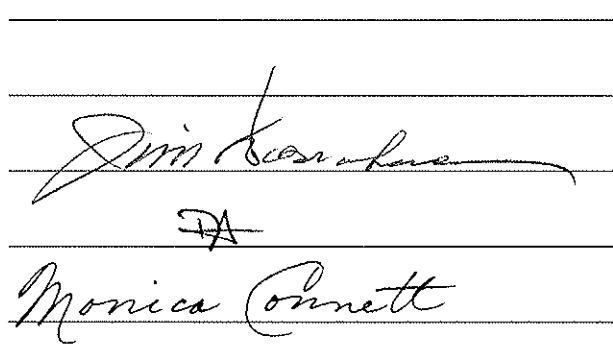 Jim
DA
Monica Connett